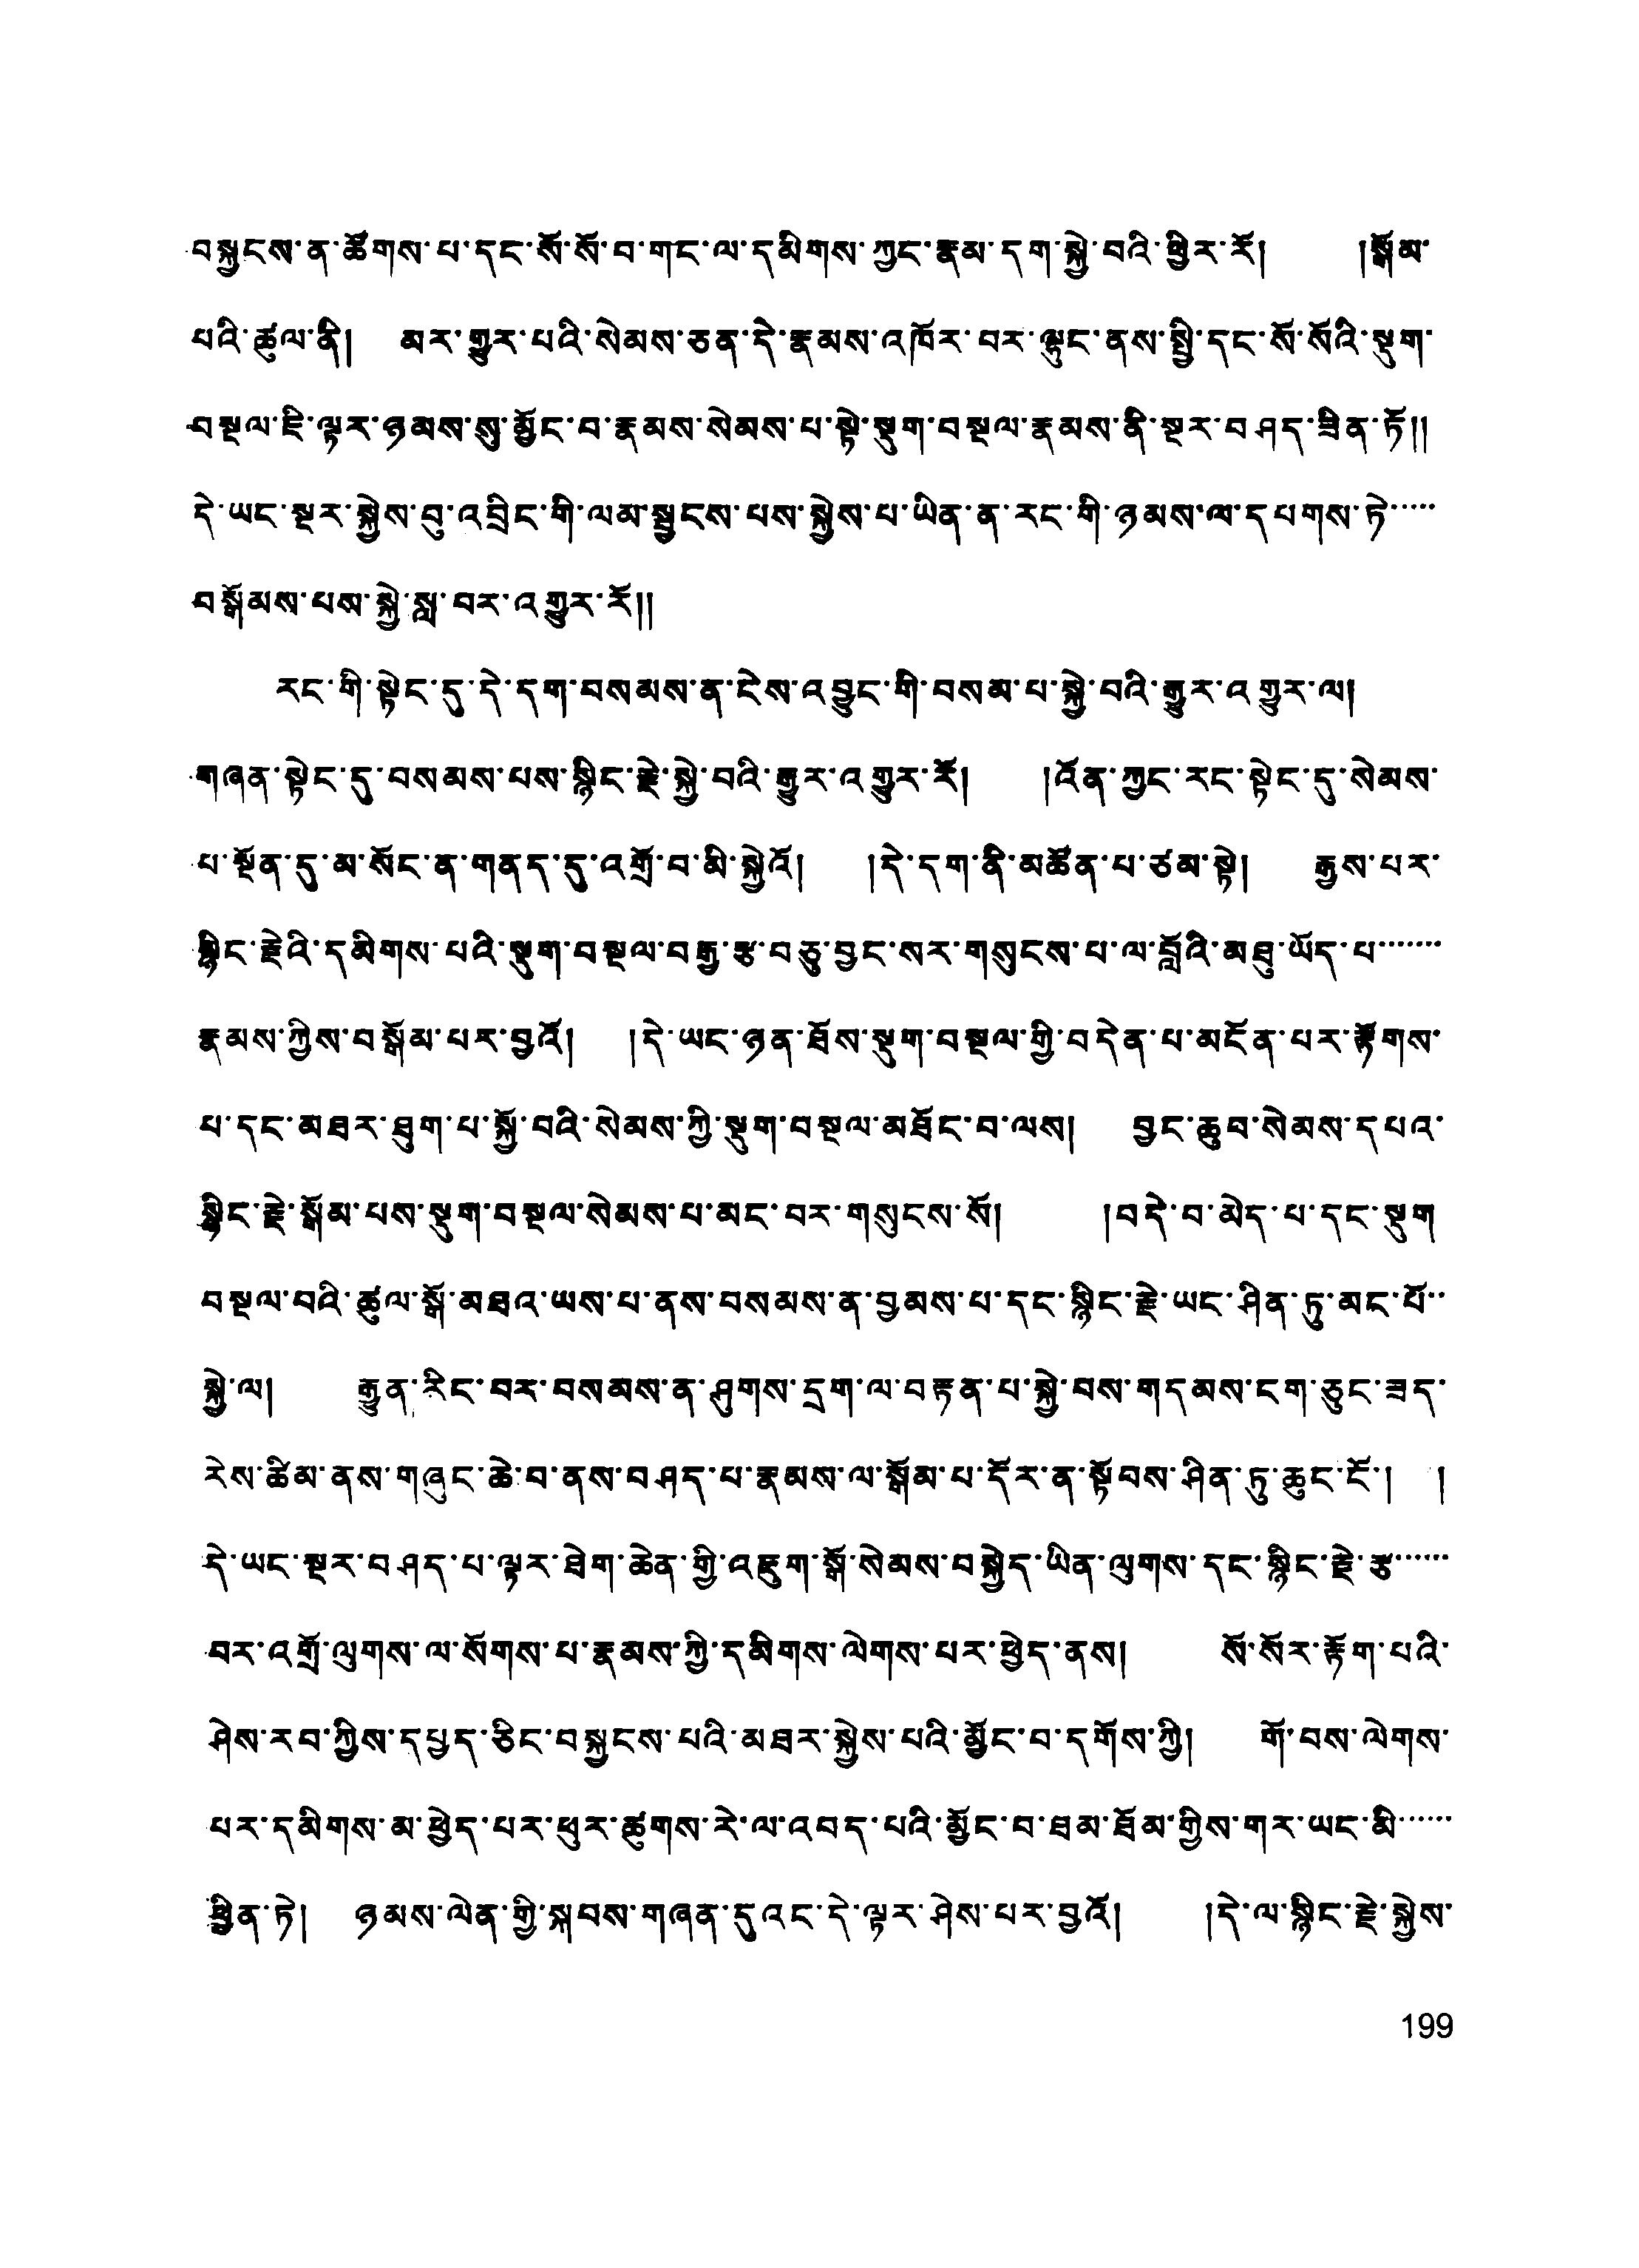 བསྐྱངས་ན་ཚོགས་པ་དང་སོ་སོ་བ་གང་ལ་དམིགས་ཀྱང་རྣམ་དག་སྐྱེ་བའི་ཕྱིར་རོ། །སྒོམ་
པའི་ཚུལ་ནི། མར་གྱུར་པའི་སེམས་ཅན་དེ་རྣམས་འཁོར་བར་ལྷུང་ནས་སྤྱི་དང་སོ་སོའི་སྡུག་
བསྔལ་ཇི་ལྟར་ཉམས་སུ་མྱོང་བ་རྣམས་སེམས་པ་སྟེ་སྡུག་བསྔལ་རྣམས་ནི་སྔར་བཤད་ཟིན་ཏོ།།
དེ་ཡང་སྔར་སྐྱེས་བུ་འབྲིང་གི་ལམ་སྦྱངས་པས་སྐྱེས་པ་ཡིན་ན་རང་གི་ཉམས་ལ་དཔགས་ཏེ་་་་་
བསྒོམས་པས་སྐྱེ་སླ་བར་འགྱུར་རོ།།
རང་གི་སྟེང་དུ་དེ་དག་བསམས་ན་ངེས་འབྱུང་གི་བསམ་པ་སྐྱེ་བའི་རྒྱུར་འགྱུར་ལ།
གཞན་སྟེང་དུ་བསམས་པས་སྙིང་རྗེ་སྐྱེ་བའི་རྒྱུར་འགྱུར་རོ། །འོན་ཀྱང་རང་སྟེང་དུ་སེམས་
པ་སྔོན་དུ་མ་སོང་ན་གནད་དུ་འགྲོ་བ་མི་སྐྱེའོ། །དེ་དག་ནི་མཚོན་པ་ཙམ་སྟེ། རྒྱས་པར་
སྙིང་རྗེའི་དམིགས་པའི་སྡུག་བསྔལ་བརྒྱ་རྩ་བཅུ་བྱང་སར་གསུངས་པ་ལ་བློའི་མཐུ་ཡོད་པ་་་་་་་
རྣམས་ཀྱིས་བསྒོམ་པར་བྱའོ། །དེ་ཡང་ཉན་ཐོས་སྡུག་བསྔལ་གྱི་བདེན་པ་མངོན་པར་རྟོགས་
པ་དང་མཐར་ཐུག་པ་སྐྱོ་བའི་སེམས་ཀྱི་སྡུག་བསྔལ་མཐོང་བ་ལས། བྱང་ཆུབ་སེམས་དཔའ་
སྙིང་རྗེ་སྒོམ་པས་སྡུག་བསྔལ་སེམས་པ་མང་བར་གསུངས་སོ། །བདེ་བ་མེད་པ་དང་སྡུག
བསྔལ་བའི་ཚུལ་སྒོ་མཐའ་ཡས་པ་ནས་བསམས་ན་བྱམས་པ་དང་སྙིང་རྗེ་ཡང་ཤིན་ཏུ་མང་པོ་་
སྐྱེ་ལ། རྒྱུན་རིང་བར་བསམས་ན་ཤུགས་དྲག་ལ་བརྟན་པ་སྐྱེ་བས་གདམས་ངག་ཅུང་ཟད་
རེས་ཚིམ་ནས་གཞུང་ཆེ་བ་ནས་བཤད་པ་རྣམས་ལ་སྒོམ་པ་དོར་ན་སྟོབས་ཤིན་ཏུ་ཆུང་ངོ་། །
དེ་ཡང་སྔར་བཤད་པ་ལྟར་ཐེག་ཆེན་གྱི་འཇུག་སྒོ་སེམས་བསྐྱེད་ཡིན་ལུགས་དང་སྙིང་རྗེ་རྩ་་་་་་
བར་འགྲོ་ལུགས་ལ་སོགས་པ་རྣམས་ཀྱི་དམིགས་ལེགས་པར་ཕྱེད་ནས། སོ་སོར་རྟོག་པའི་
ཤེས་རབ་ཀྱིས་དཔྱད་ཅིང་བསྐྱངས་པའི་མཐར་སྐྱེས་པའི་མྱོང་བ་དགོས་ཀྱི། གོ་བས་ལེགས་
པར་དམིགས་མ་ཕྱེད་པར་ཕུར་ཚུགས་རེ་ལ་འབད་པའི་མྱོང་བ་ཐམ་ཐོམ་གྱིས་གར་ཡང་མི་་་་་་
ཕྱིན་ཏེ། ཉམས་ལེན་གྱི་སྐབས་གཞན་དུའང་དེ་ལྟར་ཤེས་པར་བྱའོ། །དེ་ལ་སྙིང་རྗེ་སྐྱེས་
199